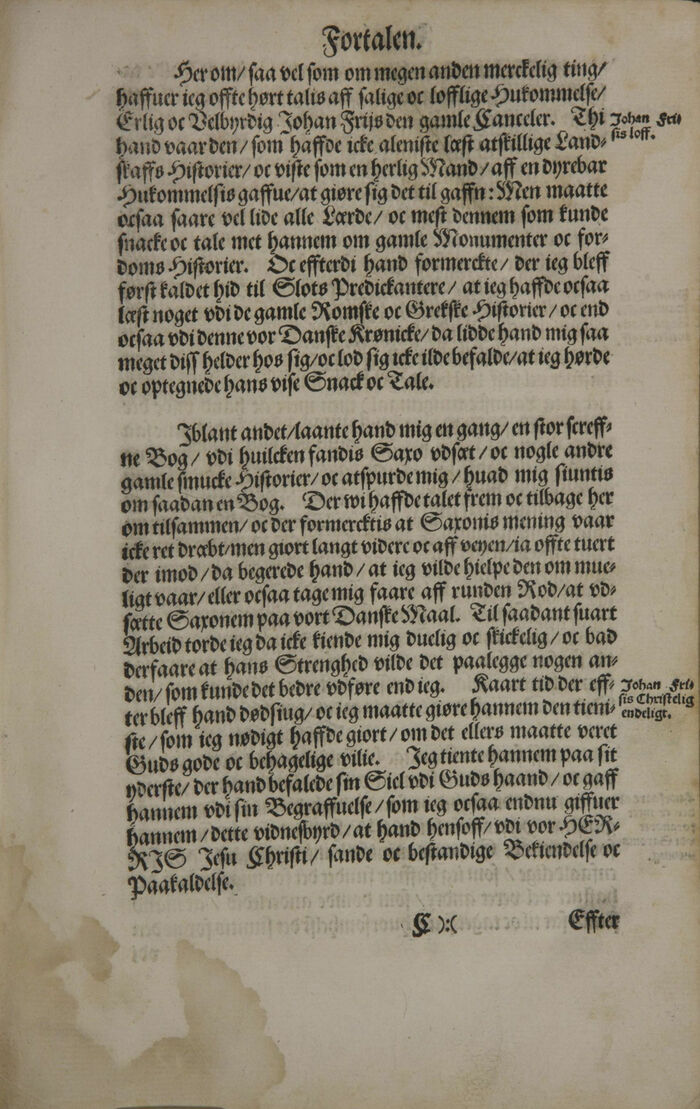 Fortalen.
Her om/ saa vel som om megen anden merckelig ting/
haffuer ieg offte hørt talis aff salige oc lofflige Hukommelse/
Erlig oc Velbyrdig Johan Frijs den gamle Canceler. Thi
Johan Frii-
sis loff.
hand vaar den/ som haffde icke aleniste læst atskillige Land-
skaffs Historier/ oc viste som en herlig Mand/ aff en dyrebar
Hukommelsis gaffue/ at giøre sig det til gaffn: Men maatte
ocsaa saare vel lide alle Lærde/ oc mest dennem som kunde
snacke oc tale met hannem om gamle Monumenter oc for-
doms Historier. Oc effterdi hand formerckte/ der ieg bleff
først kaldet hid til Slots Predickantere/ at ieg haffde ocsaa
læst noget vdi de gamle Romske oc Grekske Historier/ oc end
ocsaa vdi denne vor Danske Krønicke/ da lidde hand mig saa
meget diss helder hos sig/ oc lod sig icke ilde befalde/ at ieg hørde
oc optegnede hans vise Snack oc Tale.
Iblant andet/ laante hand mig en gang/ en stor screff-
ne Bog/ vdi huilcken fandis Saxo vdsæt/ oc nogle andre
gamle smucke Historier/ oc atspurde mig/ huad mig siuntis
om saadan en Bog. Der wi haffde talet frem oc tilbage her
om tilsammen/ oc der formercktis at Saxonis mening vaar
icke ret dræbt/ men giort langt videre oc aff veyen/ ia offte tuert
der imod/ da begerede hand/ at ieg vilde hielpe den om mue-
ligt vaar/ eller ocsaa tage mig faare aff runden Rod/ at vd-
sætte Saxonem paa vort Danske Maal. Til saadant suart
Arbeid torde ieg da icke kiende mig duelig oc skickelig/ oc bad
derfaare at hans Strenghed vilde det paalegge nogen an-
den/ som kunde det bedre vdføre end ieg. Kaart tid der eff-
Johan Fri-
sis Christelig
endeligt.
ter bleff hand dødsiug/ oc ieg maatte giøre hannem den tieni-
ste/ som ieg nødigt haffde giort/ om det ellers maatte veret
Guds gode oc behagelige vilie. Jeg tiente hannem paa sit
yderste/ der hand befalede sin Siel vdi Guds haand/ oc gaff
hannem vdi sin Begraffuelse/ som ieg ocsaa endnu giffuer
hannem/ dette vidnesbyrd/ at hand hensoff/ vdi vor HER-
RIS Jesu Christi/ sande oc bestandige Bekiendelse oc
Paakaldelse.
C ):( Effter